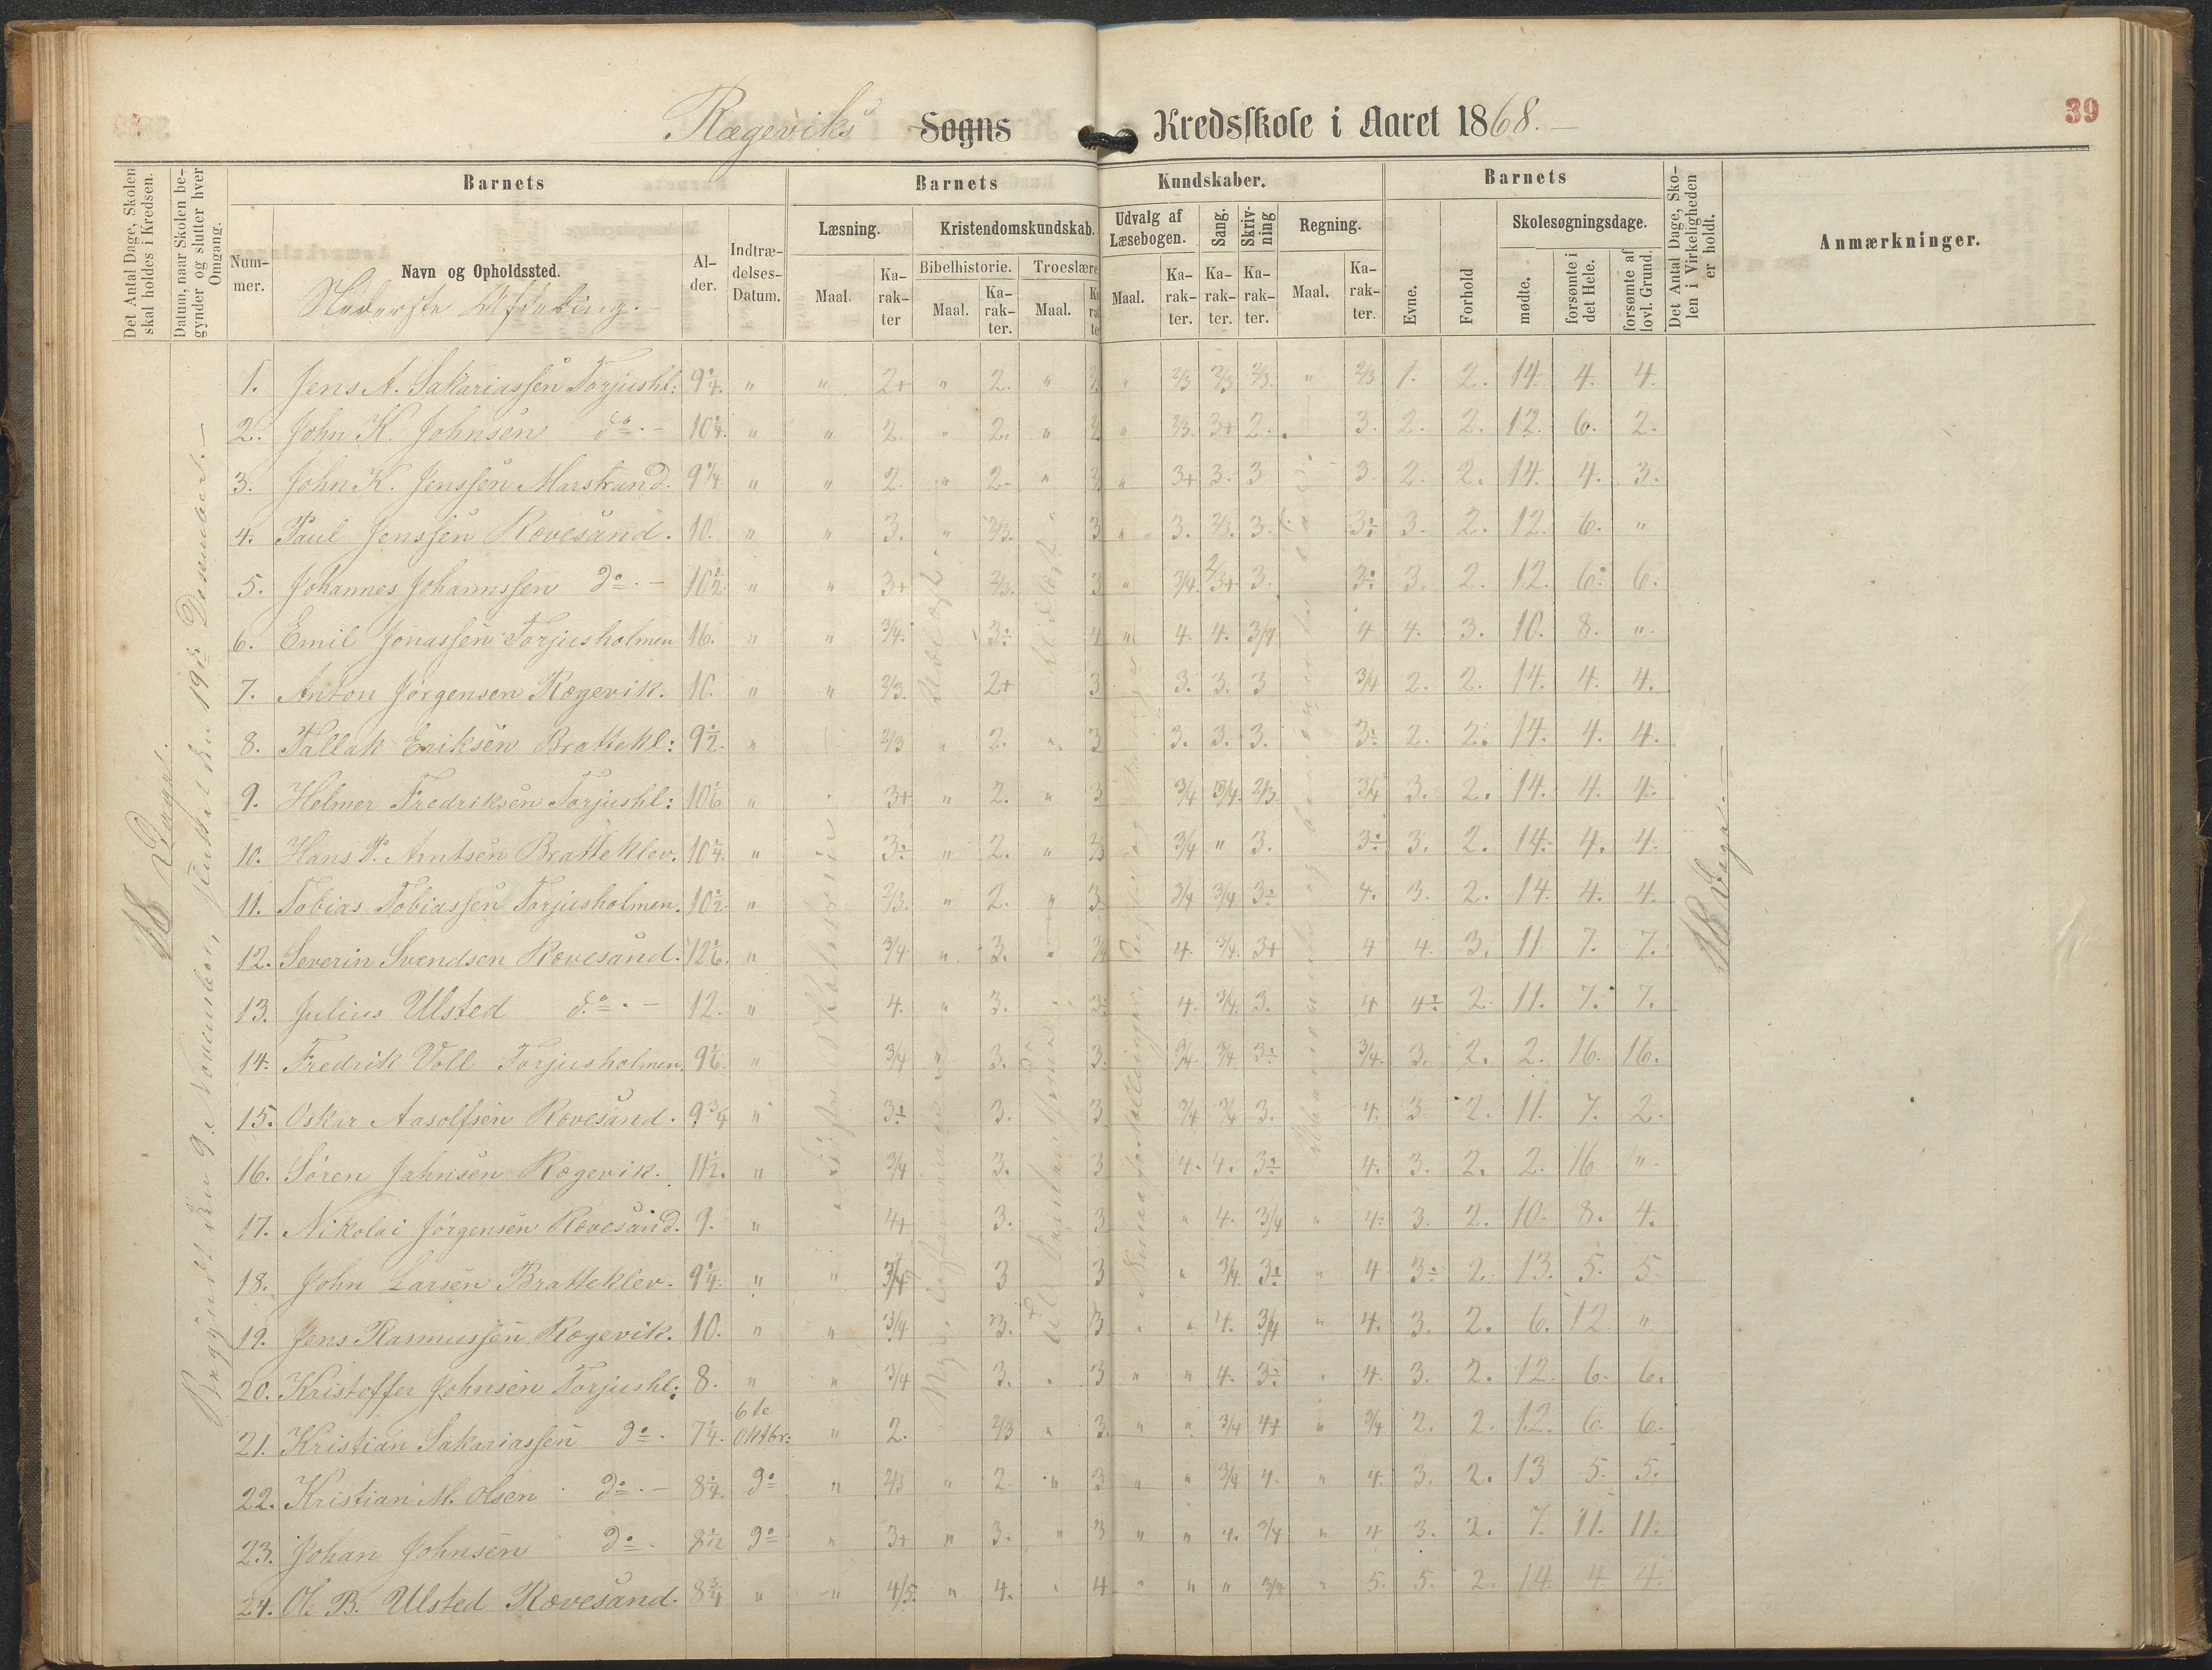 Rægeviks Sogns Kredsskole i Aaret 1868. 39
Det Antal Dage, Skolen skal holdes i Kredsen.
Datum, naar Skolen begynder og slutter hver Omgang.
Barnets Barnets Kundskaber. Barnets
Nummer. Navn og Opholdssted. Alder. Indtrædelses-Datum.
Læsning. Kristendomskundskab. Udvalg af Læsebogen. Sang. Skrivning Regning. Skolesøgningsdage.
Bibelhistorie. Troeslære
Maal. Karakter Maal. Karakter. Maal. Maal. Karakter. Karakter. Karakter. Maal. Karakter. Evne. Forhold mødte. forsømte i det Hele. forsømte af lovl. Grund.
Det Antal Dage, Skolen i Virkeligheden er holdt.
Anmærkninger.
Nederste Afdeling.
18 Dage.
18 Dage.
1. Jens A. Sakariassen Torjushl: 9 1/4. " " 2+ " 2. " " 2/3 2/3 2/3. " 2/3 1. 2. 14. 4. 4.
2. John K. Johnsen do.- 10 1/4. " " 2. " 2. " " 2/3. 3+ 2. 3. 2. 2. 12. 6. 2.
3. John K. Jenssen Marstrand. 9 1/4. " " 2. " 2- " " 3+ 3. 3 3. 2. 2. 14. 4. 3.
4. Paul Jenssen Rævesand. 10. " " 3. " 2/3. 3 " 3. 2/3. 3. 3÷ 3. 2. 12. 6. "
5. Johannes Johannssen do.- 10 1/2. " " 3+ 2/3. 3 " 3/4. 2/3+ 3. 3÷ 3. 2. 12. 6. 6.
6. Emil Jonassen Torjusholmen 16. " " 3/4. 3÷ 4 " 4. 4. 3/4 4 4. 3. 10. 8. "
7. Anton Jørgensen Rægevik. 10. " " 2/3. 2+ 3 3. 3. 3 3/4 2. 2. 14. 4. 4.
8. Tallak Eriksen Brattekl: 9 1/2. " 2/3 " 2. " 3 3. 3. 3. 3÷ 2. 2. 14. 4. 4.
9. Helmer Fredriksen Torjushl: 10 1/6 " 3+ " 2. " 3 3/4 3/4. 2/3 3/4 3. 2. 14. 4. 4.
10. Hans P. Arntsen Bratteklev. 10 1/4. " 3÷ " 2. " 2/3 3/4 " 3. 3÷ 3. 2. 14. 4. 4.
11. Tobias Tobiassen Torjusholmen. 10 1/2. " 2/3. " 2. " 3 3/4 3/4 3÷ 4. 3. 2. 14. 4. 4.
12. Severin Svendsen Rævesand. 12 1/6. " 3/4 " 3. " 3/4 4. 3/4. 3+ 4 4. 3. 11 7. 7.
13. Julius Ulsted do.- 12. " 4. " 3. 3÷ 4. 3/4. 3. 4 4÷ 2. 11. 7. 7.
14. Fredrik Voll Torjusholmen. 9 1/6. " 3/4 " 3. 3. 3/4 3/4 3÷ 3/4. 3. 2. 2. 16. 16.
15. Oskar Aasolfsen Rævesand. 9 3/4 " 3÷ 3. 3 3/4 3/4 3. 4. 3 2. 11. 7. 2.
16. Søren Jahnsen Rægevik. 11 1/2. " 3/4 3. 3 4. 4. 3÷ 4. 3. 2. 2. 16 "
17. Nikolai Jørgensen Rævesand. 9. " 4+ 3. 3 " 4. 3/4 " 4÷ 3. 2. 10. 8. 4.
18. John Larsen Bratteklev. 9 1/4. " " 3/4 3 3 " 3/4. 3÷ " 4 3÷ 2. 13. 5. 5.
19. Jens Rasmussen Rægevik. 10. " " 3/4 3. 3 " " 4. 3/4 " 4. 3. 2. 6. 12. "
20. Kristoffer Johnsen Torjushl: 8. " " 3/4 3. " 3 " " 4. 3÷ " 4. 3. 2. 12. 6. 6.
21. Kristian Sakariassen do. 7 1/4. 6te Oktbr: " 2. 2/3 " 3. " " 3/4 4+ " 3/4 2. 2. 12. 6. 6.
22. Kristian M. Olsen do.- 8 1/4. do " 2/3 " 2. " 3 " " 3/4 4. " 4. 3. 2. 13 5. 5.
23. Johan Johnsen do. 8 1/2 do " 3+ " 3. " 3 " " 4. 3/4 " 4 3. 2. 7. 11. 11.
24. Ol. B. Ulsted Rævesand. 8 3/4 " " 4/5. " 4. " 4 " " " 3/4 " 5. 5. 2. 14. 4 4.